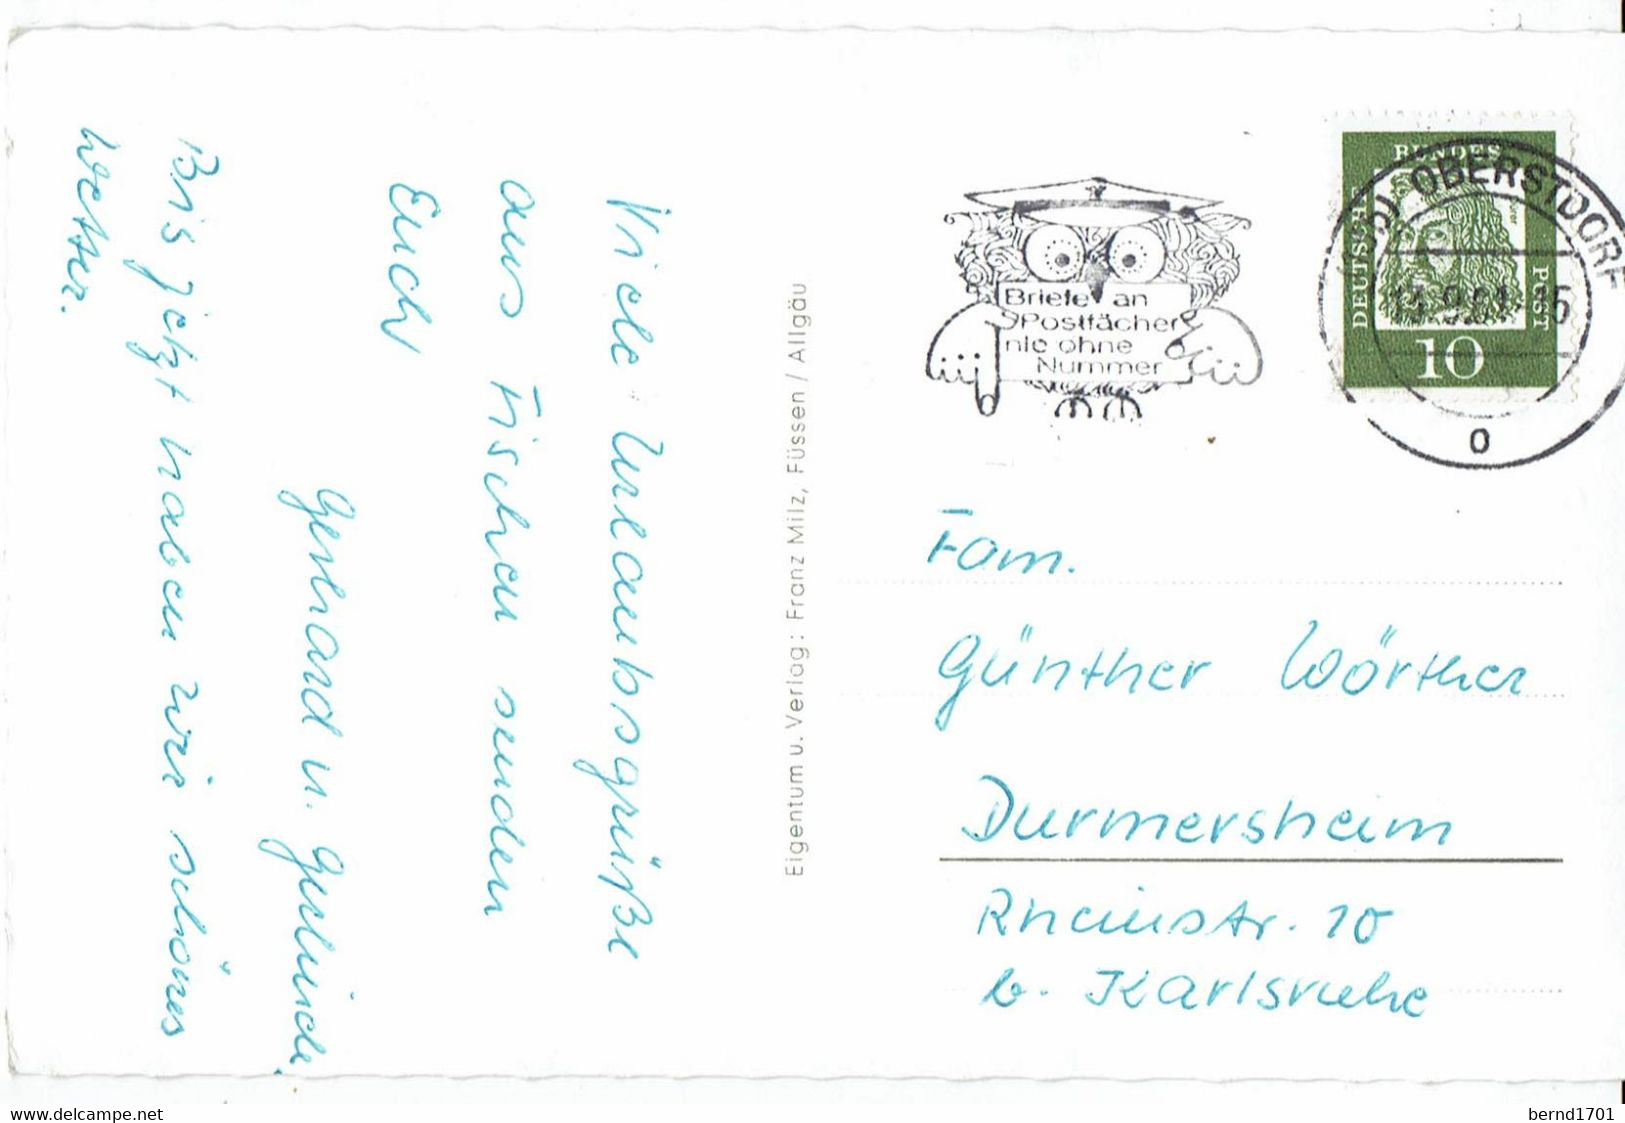 Viele Urlaubsgrüße
aus Fischen senden
Euch
Gerhard u. Gerlinde.
Bis jetzt haben wir schönes
Wetter.
Eigentum u. Verlag: Franz Milz, Füssen / Allgäu
Briefe an
Postfächer
nie ohne
Nummer
DEUTSCHE
BUNDES
POST
10
OBERSTDORF
o
Fam.
Günther Wörther
Durmersheim
Rheinstr. 10
b. Karlsruhe
www.delcampe.net
bernd1701